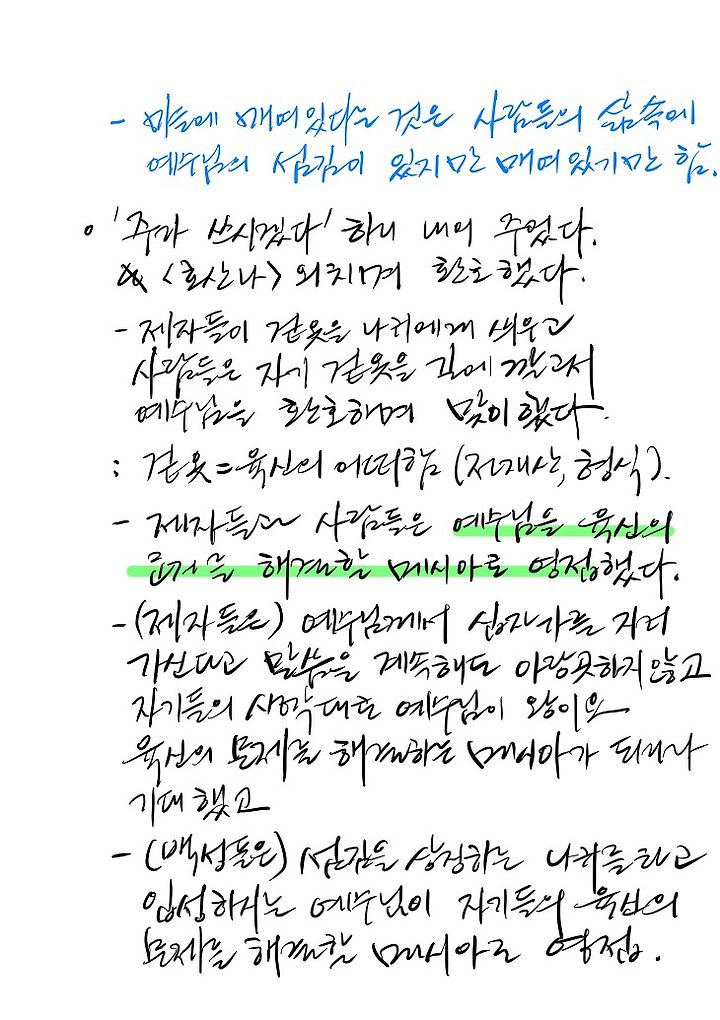 - 마을에 매여있다는 것은 사람들의 삶속에
예수님의 섬김이 있지만 매여있기만 함.
○ '주가 쓰시겠다' 하니 내어 주었다.
& <호산나> 외치며 환호했다.
- 제자들이 겉옷을 나귀에게 씌우고
사람들은 자기 겉옷을 길에 깔고서
예수님을 환호하며 맞이했다.
: 겉옷=육신의 어떠함 (전재산, 형식).
- 제자들과 사람들은 예수님을 육신의
문제를 해결할 메시아로 영접했다.
- (제자들은) 예수님께서 십자가를 지러
가신다고 말씀을 계속해도 아랑곳하지않고
자기들의 생각대로 예수님이 왕이요
육신의 문제를 해결하는 메시아가 되리라
기대했고
- (백성들은) 섬김을 상징하는 나귀를 타고
입성하시는 예수님이 자기들의 육신의
문제를 해결할 메시아로 영접.